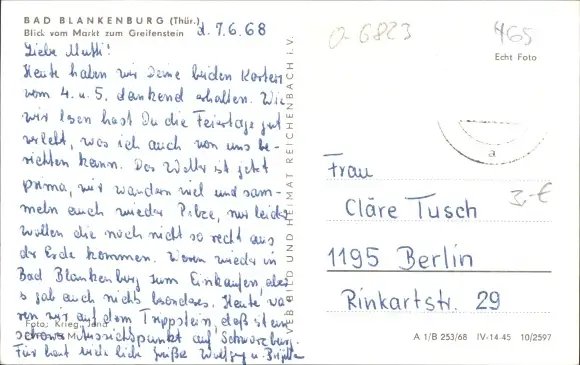 BAD BLANKENBURG (Thür.)
Blick vom Markt zum Greifenstein
d. 7.6.68
Liebe Mutti!
Heute haben wir Deine beiden Karten
vom 4. u. 5. dankend erhalten. Wie
wir lesen hast Du die Feiertage gut
verlebt, was ich auch von uns be-
richten kann. Das Wetter ist jetzt
prima, wir wandern viel und sam-
meln auch wieder Pilze, nur leider
wollen die noch nicht so recht aus
der Erde kommen. Waren wieder in
Bad Blankenburg zum Einkaufen, aber
s gab auch nichts besonderes. Heute wa-
ren wir auf dem Trippstein, daß ist ein
schönes Aussichtspunkt auf Schwarzburg.
Für heut viele liebe Grüße Wolfgang u. Brigitte
Foto: Krieg, Jena
VEB BILD UND HEIMAT REICHENBACH i. V.
a 6823
465
Echt Foto
a
3,-€
Frau
Cläre Tusch
1195 Berlin
Rinkartstr. 29
A 1/B 253/68 IV-14-45 10/2597